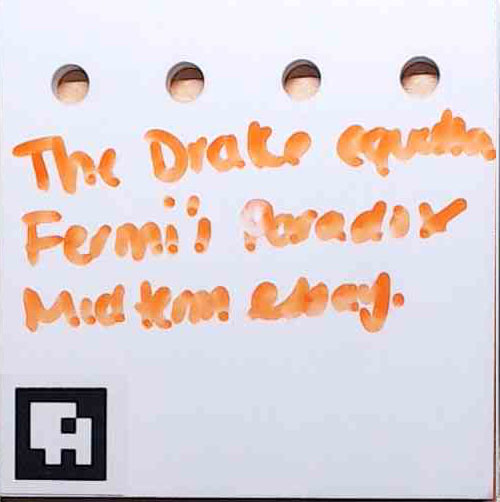 The Drake equation
Fermi's Paradox
Midterm essay.